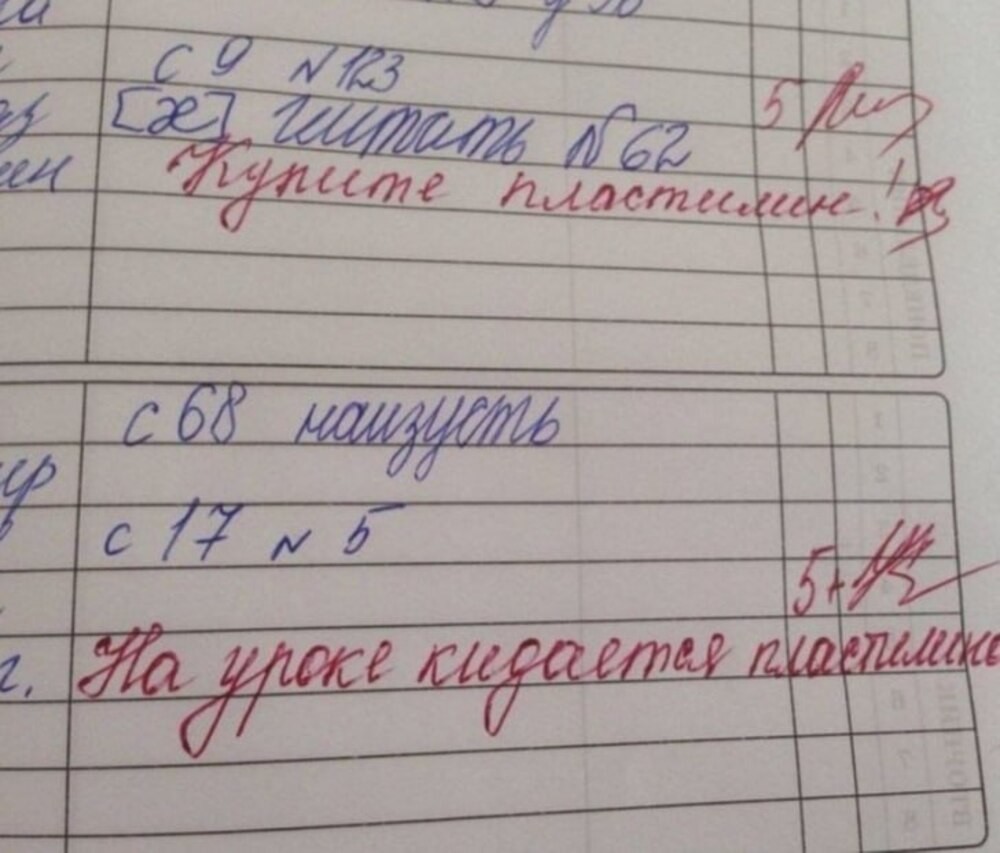 с 9 №123
[æ] читать №62 5
Купите пластилин!
с 68 наизусть
с 17 № 5
5+
г. На уроке кидается пластилине